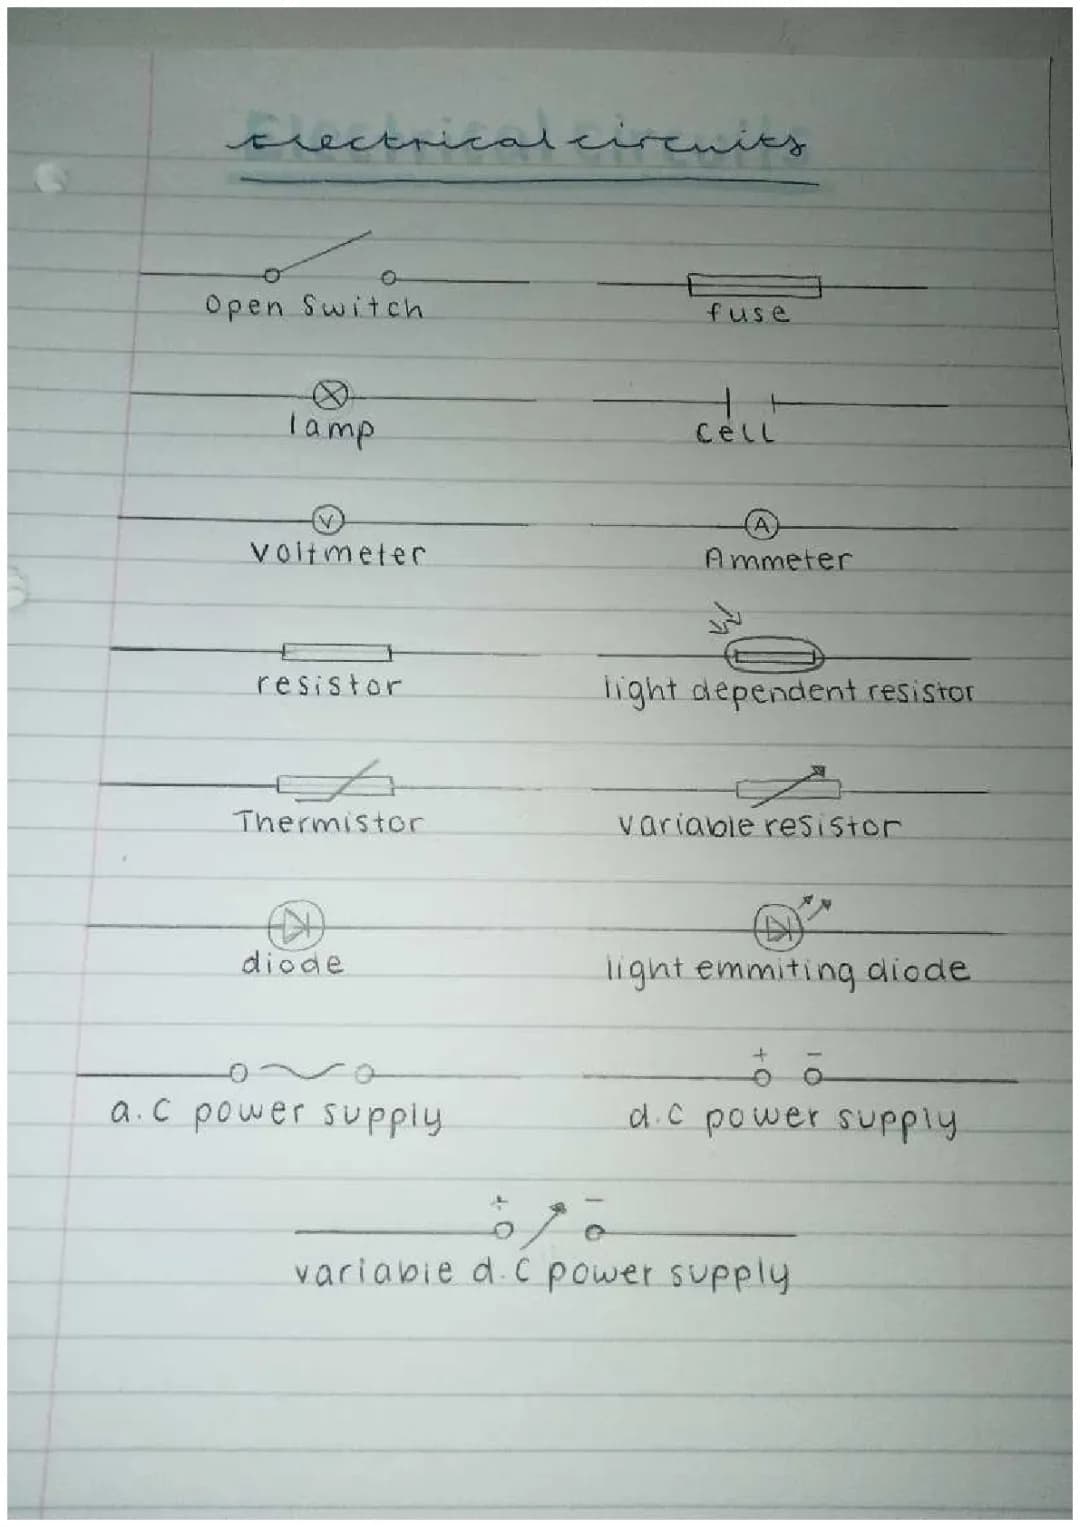 Electrical circuits
Open Switch
fuse
lamp
cell
V
A
Voltmeter
Ammeter
resistor
light dependent resistor
Thermistor
variable resistor
diode
light emmiting diode
+ −
a.c power supply
d.c power supply
+ −
variable d.c power supply